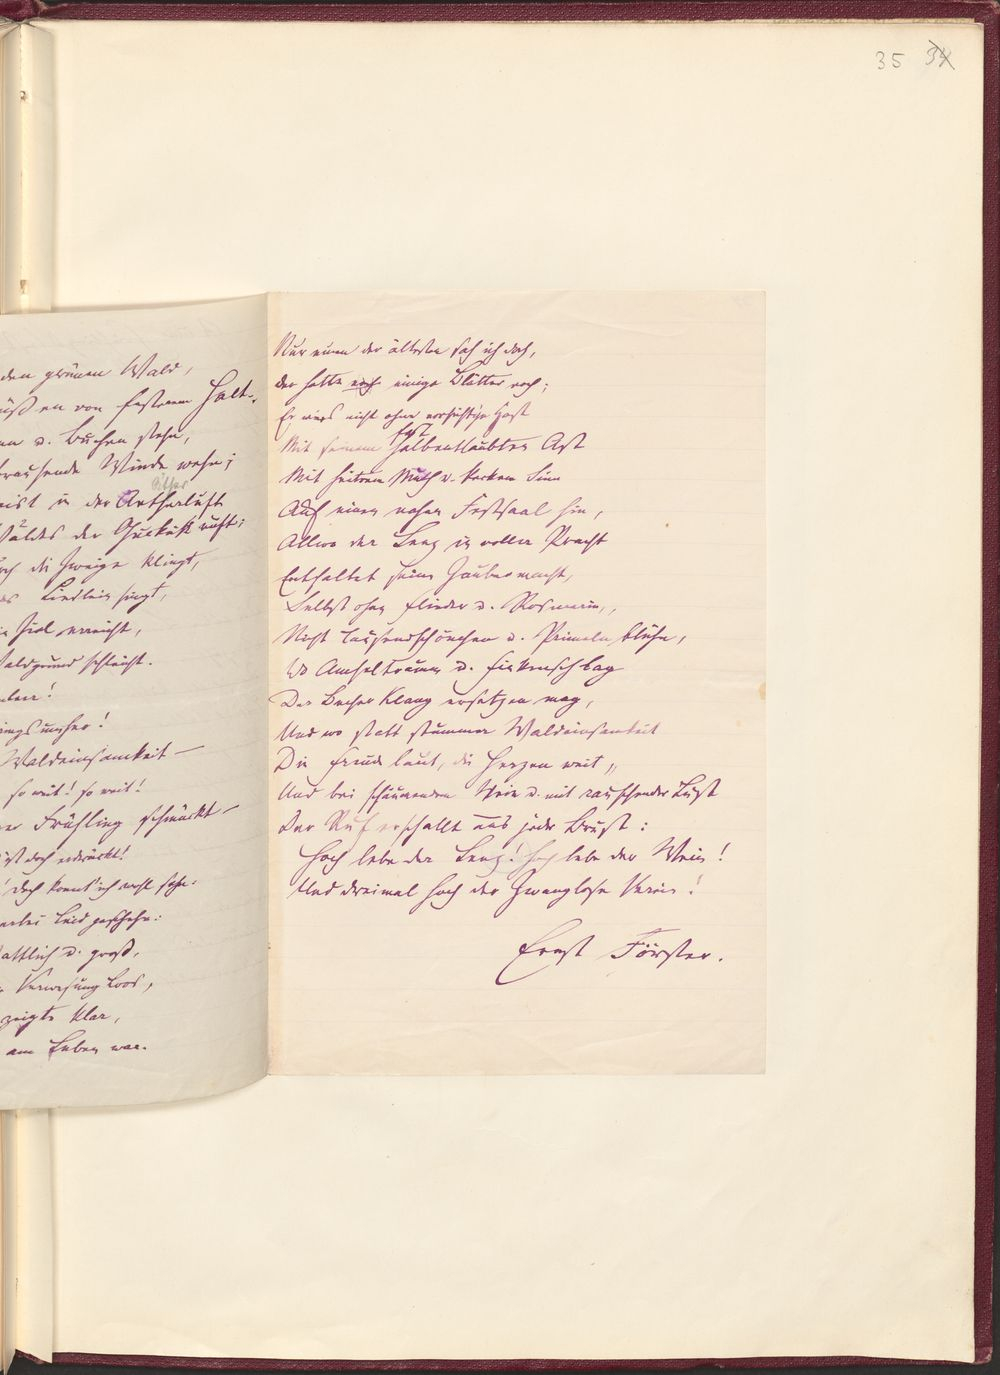 35 34
den grünen Wald,
en von festerem Halt.
u. Buchen stehn,
brausende Winde wehn;
Äther
ist in der Aetherluft
Waldes der Guckuk ruft;
durch die Zweige klingt,
Liedlein singt,
Ziel erreicht,
Waldgrund schleicht.
rings umher!
Waldeinsamkeit —
so weit! so weit!
Frühling schmückt —
ist doch erdrückt!
doch konnt' ich nicht sehn.
Leid geschehn:
stattlich u. groß,
Verwesung Loos,
zeigte klar,
am Leben war.
Nur einen der ältesten sah ich doch,
der hatte noch einige Blätter noch;
Er wies nicht ohne vorsichtige Hast
fast
Mit seinem halbentlaubten Ast
Mit heitrem Muth u. keckem Sinn
Auf einen nahen Festsaal hin,
Allwo der Lenz in voller Pracht
Entfaltet seine Zaubermacht,
Selbst ohne Flieder u. Rosmarin,
Nicht Tausendschönchen u. Primeln blühn,
Wo Amseltraum u. Finkenschlag
Der Becher Klang ersetzen mag,
Und wo statt stummer Waldeinsamkeit
Die Freude laut, die Herzen weit,
Und bei schäumendem Wein u. mit rauschender Lust
Der Ruf erschallt aus jeder Brust:
Hoch lebe der Lenz! hoch lebe der Wein!
Und dreimal hoch der Zwanglose Verein!
Ernst Förster.